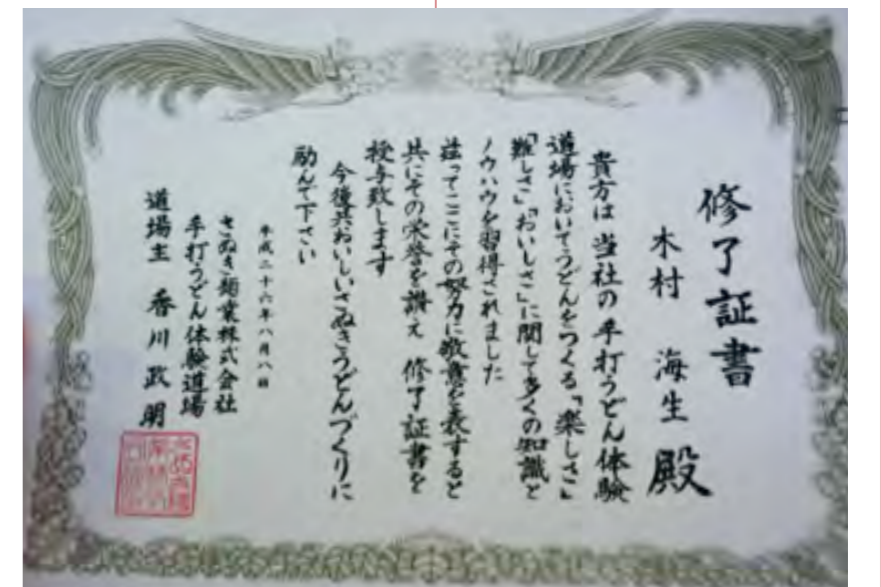 修了証書
木村 海生 殿
貴方は 当社の 手打うどん体験
道場においてうどんをつくる「楽しさ」
「難しさ」「おいしさ」に関して多くの知識と
ノウハウを習得されました
茲ってここにその努力に敬意を表すると
共にその栄誉を讃え 修了証書を
授与致します
今後共おいしいさぬきうどんづくりに
励んで下さい
平成二十六年八月八日
さぬき麺業株式会社
手打うどん体験道場
道場主 香川政明